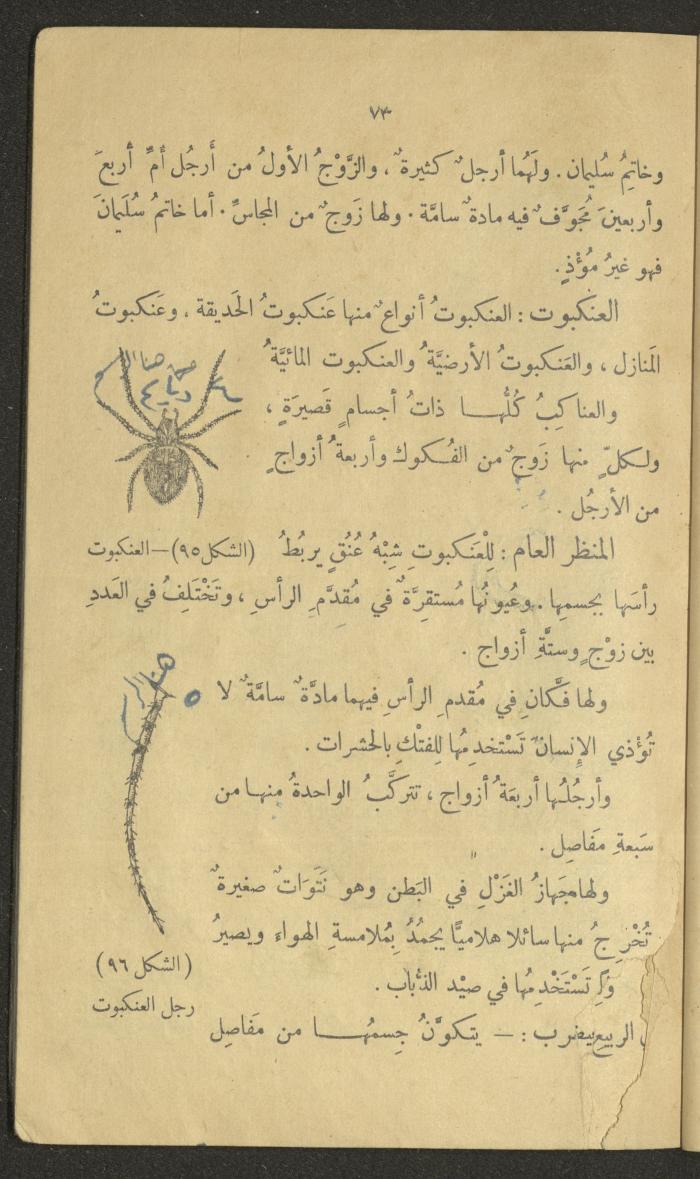 ٧٣
وخاتِمُ سُليمان . ولَهُما أرجلٌ كثيرةٌ ، والزَّوْجُ الأولُ من أَرجُلِ أمِّ أربعَ
وأربعينَ مُجَوَّفٌ فيه مادةٌ سامَّة . ولها زَوجٌ من المجاسِّ . أما خاتمُ سُلَيمانَ
فهو غيرُ مُؤْذٍ .
العنكبوت : العنكبوتُ أنواعٌ منها عَنكبوتُ الحَديقة ، وعَنكبوتُ
المَنازل ، والعَنكبوتُ الأرضيَّةُ والعنكبوت المائيَّةُ
والعناكِبُ كُلُّهــا ذاتُ أجسامٍ قَصيرَةٍ ،
ولـكلٍّ منها زَوجٌ من الفُـكوك وأربعةُ أزواجٍ
من الأرجُل .
المنظر العام : لِلْعَنكبوتِ شِبْهُ عُنُقٍ يربُطُ
(الشكل ٩٥) — العنكبوت
رأسَها بجسمِها . وعُيونُها مُستقِرَّةٌ في مُقدَّمِ الرأسِ ، وتَخْتَلِفُ في العَددِ
بين زوْجٍ وستَّةِ أزواج .
ولها فَكَّانِ في مُقدمِ الرأسِ فيهما مادَّةٌ سامَّةٌ لا
تُؤْذي الإنسانَ تَسْتخدِمُها لِلفتْكِ بالحشرات .
وأرجُلُها أربعَةُ أزواج ، تتركَّبُ الواحدةُ منهـا من
سَبعةِ مَفاصِل .
ولها جَهازُ الغَزْلِ في البَطن وهو نَتَوَاتٌ صغيرةٌ
تُخْرِجُ منها سائلا هلاميًّا يجمُدُ بِمُلامسةِ الهواء ويصيرُ
تَسْتَخْدِمُها في صيْد الذُّباب .
(الشكل ٩٦)
رجل العنكبوت
: — يتكوَّنُ جِسمُهــا من مَفاصِل